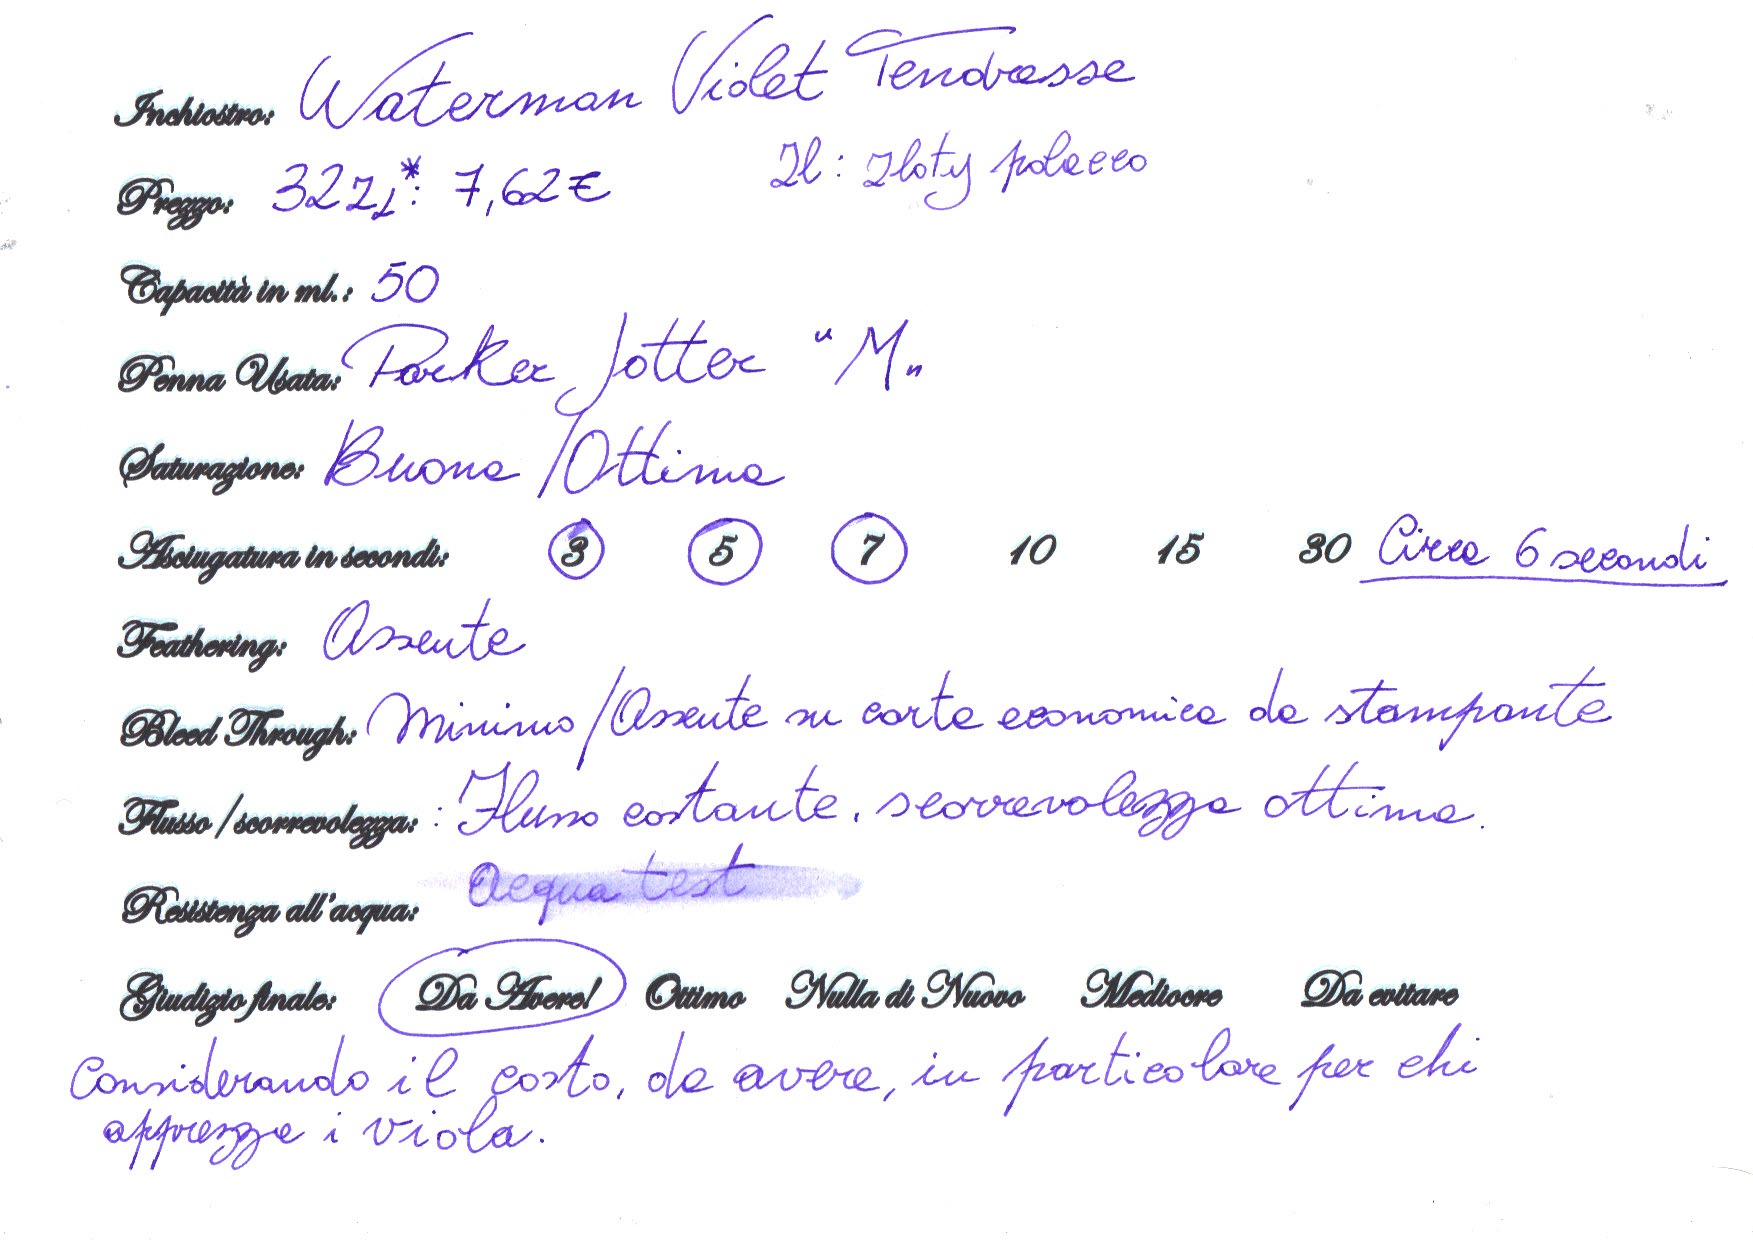 Inchiostro: Waterman Violet Tendresse
Prezzo: 32 Zł*: 7,62 € Zl : zloty polacco
Capacità in ml.: 50
Penna Usata: Parker Jotter "M"
Saturazione: Buona / Ottima
Asciugatura in secondi: 3 5 7 10 15 30 Circa 6 secondi
Feathering: Assente
Bleed Through: Minimo / Assente su carta economica da stampante
Flusso / scorrevolezza: : Flusso costante, scorrevolezza ottima.
Resistenza all'acqua: Acqua test
Giudizio finale: Da Avere! Ottimo Nulla di Nuovo Mediocre Da evitare
Considerando il costo, da avere, in particolare per chi
apprezza i viola.